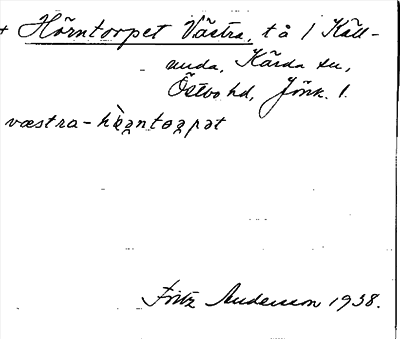 + Hörntorpet Västra, tå 1 Käll-
unda, Kärda sn,
Östbo hd, Jönk. l.
væstra-hὰ̣ntoρpət
Fritz Andersson 1938.